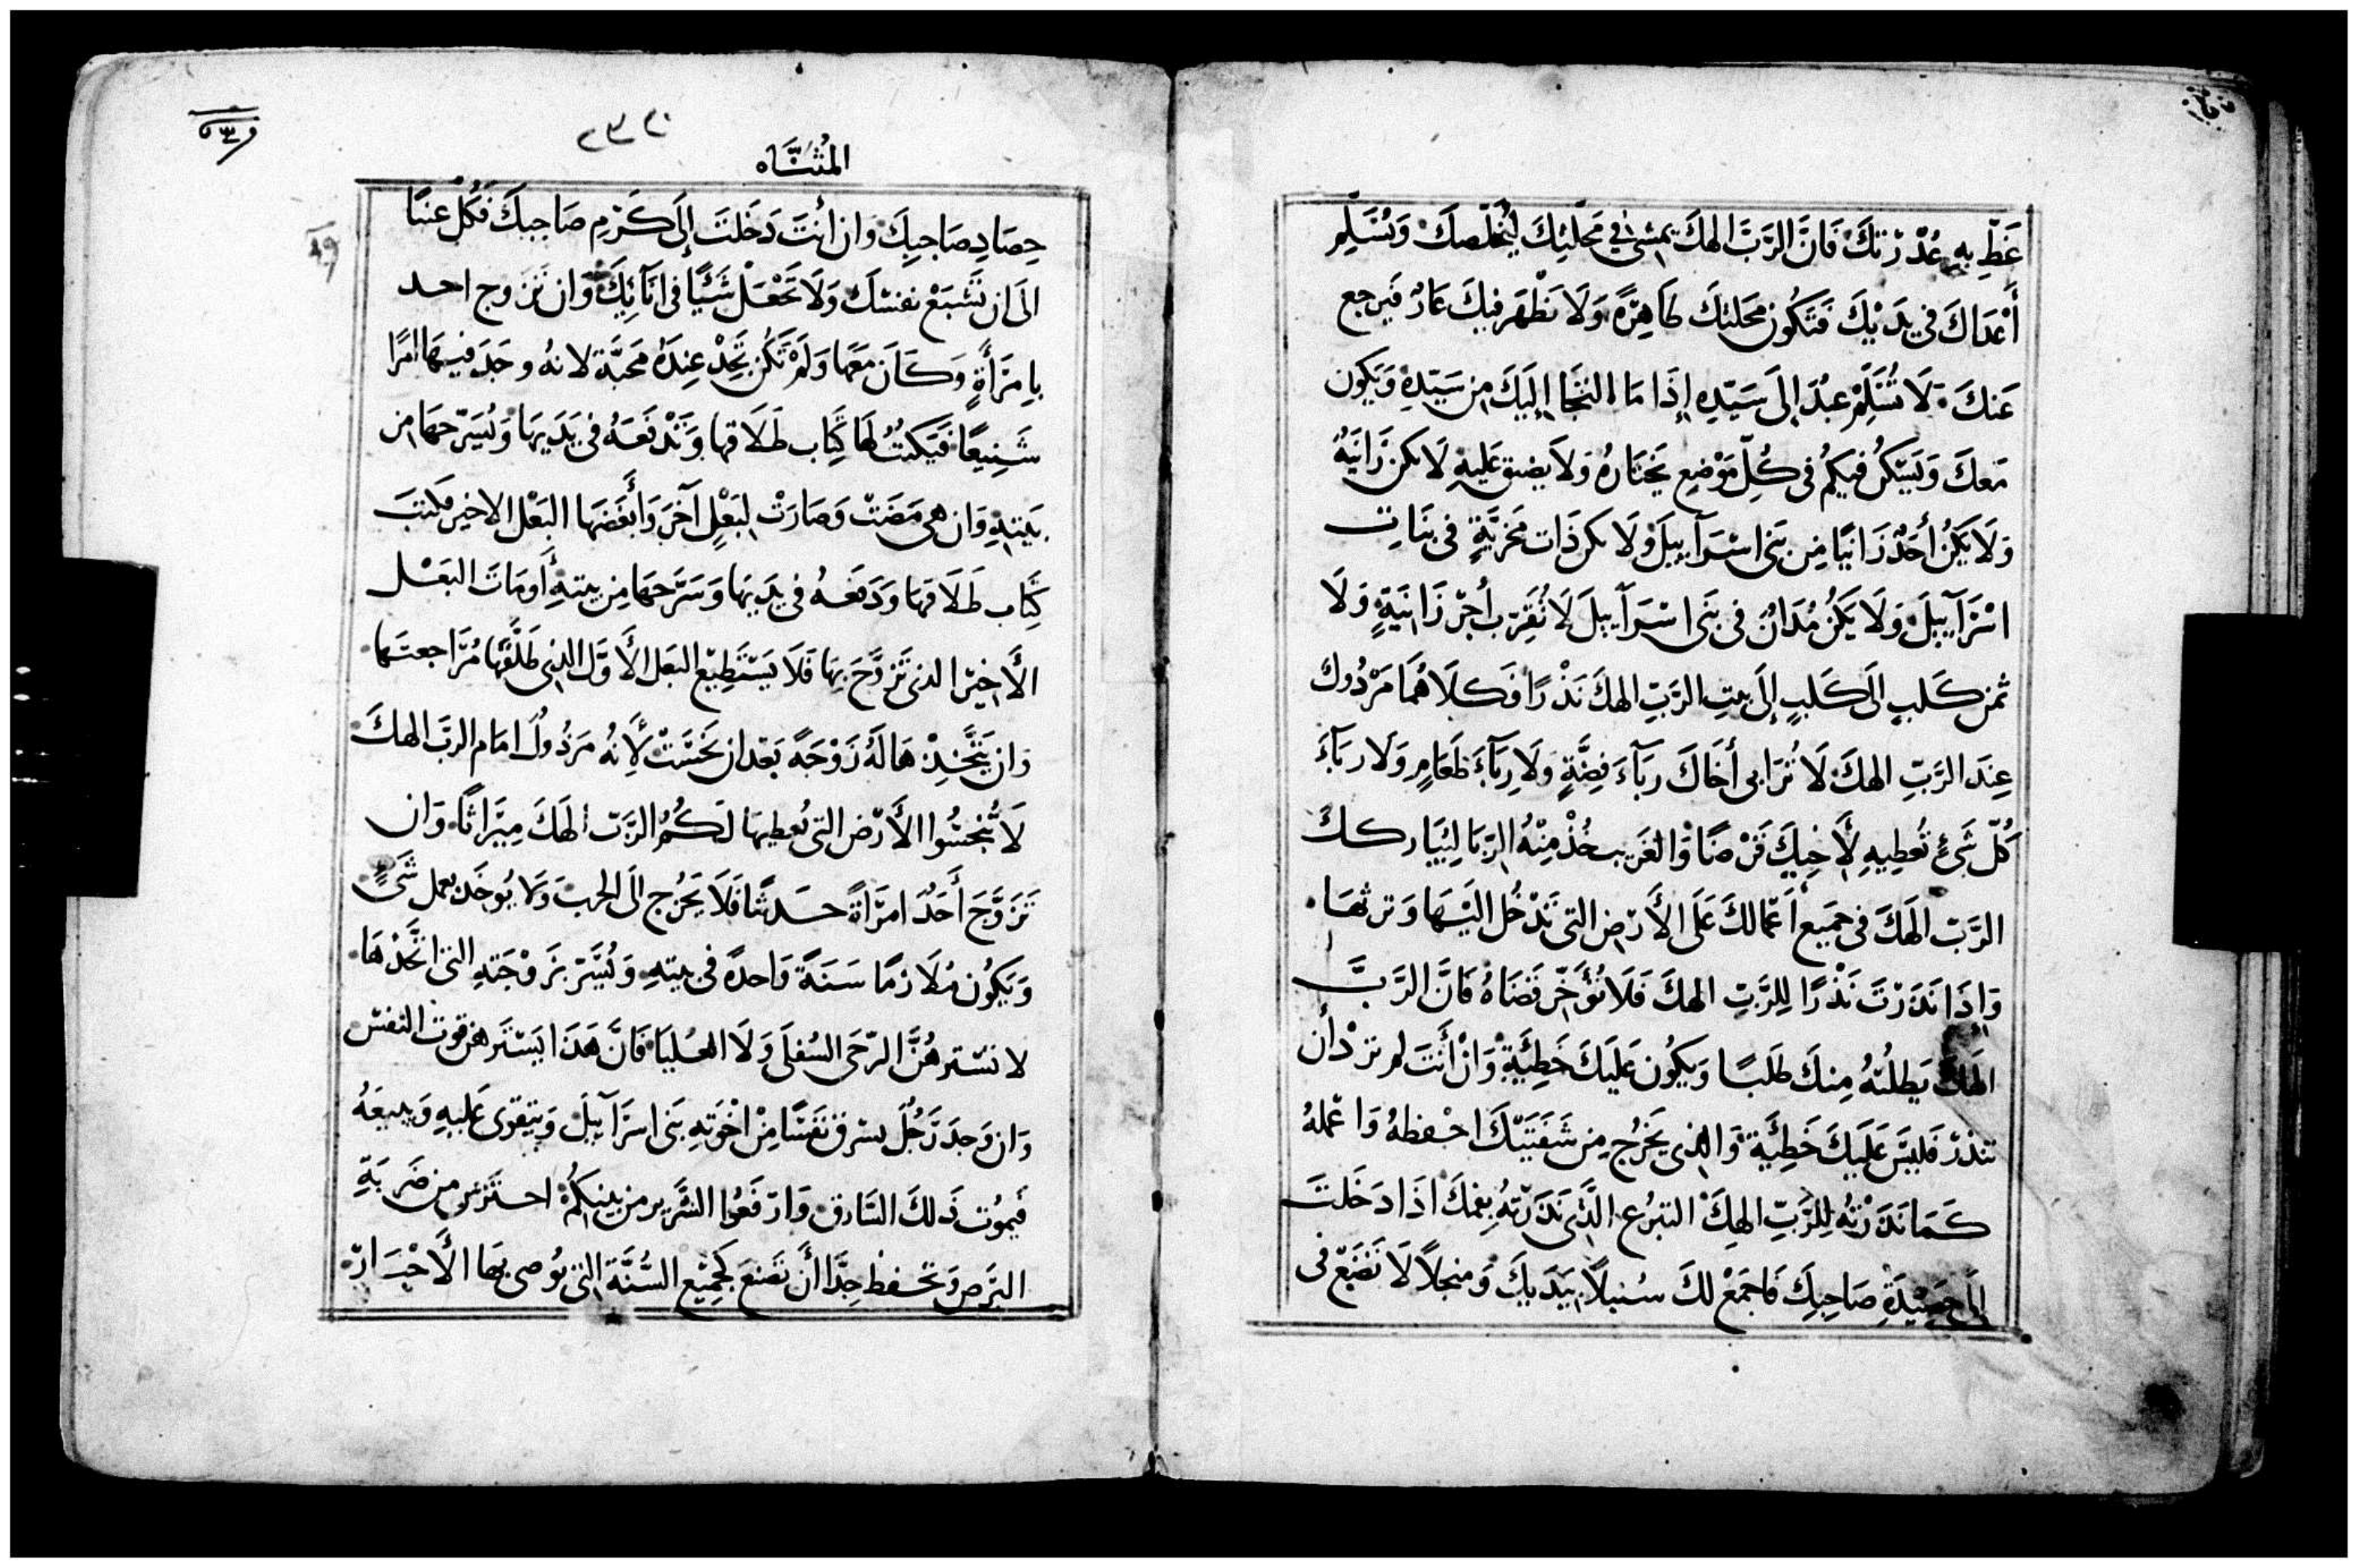 غَطِّ بِهِ عُذْرَتَكَ فَانَّ الرَّبَّ الهكَ يمشى في مَحَلتِكَ لِيُخَلّصكَ وَيُسَلِّم
أَعْدَاكَ في يَدَيْكَ فَتَكُون محَلتكَ طَاهِرَةً وَلَا يَظْهَر فيكَ عَارٌ فَيَرجع
عَنكَ لَا تُسَلِّمْ عبْدَ إلَى سَيّدِهِ إذَا مَا التَجَا إلَيكَ مِن سَيّدِهِ وَيَكون
مَعكَ وَيَسْكُن فيكُم فى كُلّ مَوْضِعٍ يَختَارُهُ وَلَا يضيق عَليهِ لَا تكن زَانيَةٌ
وَلَا يَكُنْ أحَدٌ زَانيًا مِن بَنى اسْرَآييلَ وَلَا تكن ذَات مَخزيَّةٍ فى بنَاتِ
اسْرَآييلَ وَلَا يَكُنْ مُدَانٌ فى بَنى اسْرَآييلَ لَا تُقَرِّب أجرْ زَانيَةٍ وَلَا
ثمن كَلبٍ الَى كَلبٍ إلَى بيتِ الرَّبّ الهكَ نَذْرًا فَكلَاهُمَا مَرْذُول
عِندَ الرَّبّ الهكَ لَا تُرَابى أخَاكَ ربَآءَ فِضَّةٍ وَلَا رِبَآءَ طَعَامٍ وَلَا ربَآءَ
كُلّ شَىْءٍ تُعطِيهِ لأَخِيكَ قَرْضًا وَالغَريب خُذْ مِنْهُ الرّبَا لِيُبَاركك
الرَّبّ الَهكَ فى جَميع أَعْمَالكَ عَلَى الأَرْض التى تَدْخُل الَيْهَا وَترثهَا
وَإذَا نَذَرْتَ نَذْرًا لِلرَّبّ الهكَ فَلَا تُؤَخّر قَضَاهُ فَانَّ الرَّبَّ
الهكَ يَطلُبُهُ مِنكَ طَلَبًا وَيَكُون عَلَيكَ خَطِيَّةٌ وَانْ أَنتَ لم ترْد أَن
تنذرْ فَليسَ عَلَيكَ خَطِيَّة وَالذى يَخرُج مِن شَفَتَيْكَ احْفظهُ وَاعْملهُ
كَمَا نَذَرْتهُ لِلرَّبّ الهكَ التبرُع الَّذى نَذَرْتهُ بِفمكَ اذَا دَخَلتَ
إلَى حَصِيْدَةِ صَاحِبِكَ فَاجمَعْ لكَ سُنبلًا بِيَدَيكَ وَمنجلًا لَا تَضَعْ فى
٢٣٠
المُثَنَّاه
حِصَادِ صَاحِبِكَ وَان أنتَ دَخَلتَ إلَى كَرْمِ صَاحِبكَ فَكُلْ عنبًا
الَى ان تَشْبَعْ نفسْكَ وَلَا تَجْعَلْ شَيْئًا فى انَآئِكَ وَان تَزَوج احد
بامرَأَةٍ وَكَانَ مَعَهَا وَلَمْ تَكُن تَجِدْ عِندَهُ مَحَبَّة لانهُ وجَدَ فيهَا امْرًا
شَنِيعًا فَيَكتُبُ لهَا كِتَاب طَلَاقها وَيَدْفَعهُ فى يَدَيهَا وَيُسَرّحهَا مِن
بَيتِهِ وَان هى مَضَتْ وَصَارَتْ لِبَعْلٍ آخَرَ وَأَبغَضَهَا البَعْل الاخير فكتبَ
كِتَاب طَلَاقهَا وَدَفعهُ فى يدَيهَا وَسَرَّحهَا مِن بيتهِ أَو مَاتَ البَعْل
الأَخيْر الذى تَزوَّجَ بِهَا فَلَا يَسْتَطِيْع البَعل الأَوَّل الذى طَلَّقَهَا مُرَاجعتهَا
وَان يَتَّخِذْ هَا لَهُ زَوْجَةً بَعْدَ ان نَجَسَتْ لأَِنهُ مَرْذُولٌ امَام الرَبّ الهكَ
لَا تُنَجسُوا الأَرْض التى يُعطيهَا لَكُمُ الرَّبّ الَهكَ مِيْرَاثًا وَان
تَزَوَّجَ أَحَدٌ امرَاةً حَدثَا فَلَا يَخرُج الَى الحرب وَلَا يُوخَذ بعمل شَىْءٍ
وَيَكُون مُلَازمًا سَنَةً وَاحدَةً فى بيتهِ وَيُسَرّ بزَوْجَتهِ التى اتّخَذهَا
لا تسْترهُنَّ الرّحَى السُفلَى وَلَا العُليَا فَانَّ هَذَا يَسْترهن قوت النفسْ
وَان وَجدَ رَجُلٌ يسْرق نَفسًا مِنْ اخْوَتهِ بَنى اسرَآييلَ وَيَتقوى عَليهِ وَيبيعَهُ
فَيمُوت ذَلكَ السَّارق وَارْفَعُوا الشَّرير من بينِكُمْ احترس من ضَربَةِ
البَرَص وَتحفظ جِدًّا أَن تَصْنعَ كجَمِيْع السُّنَّة التى يُوصى بهَا الأَحْبَارْ